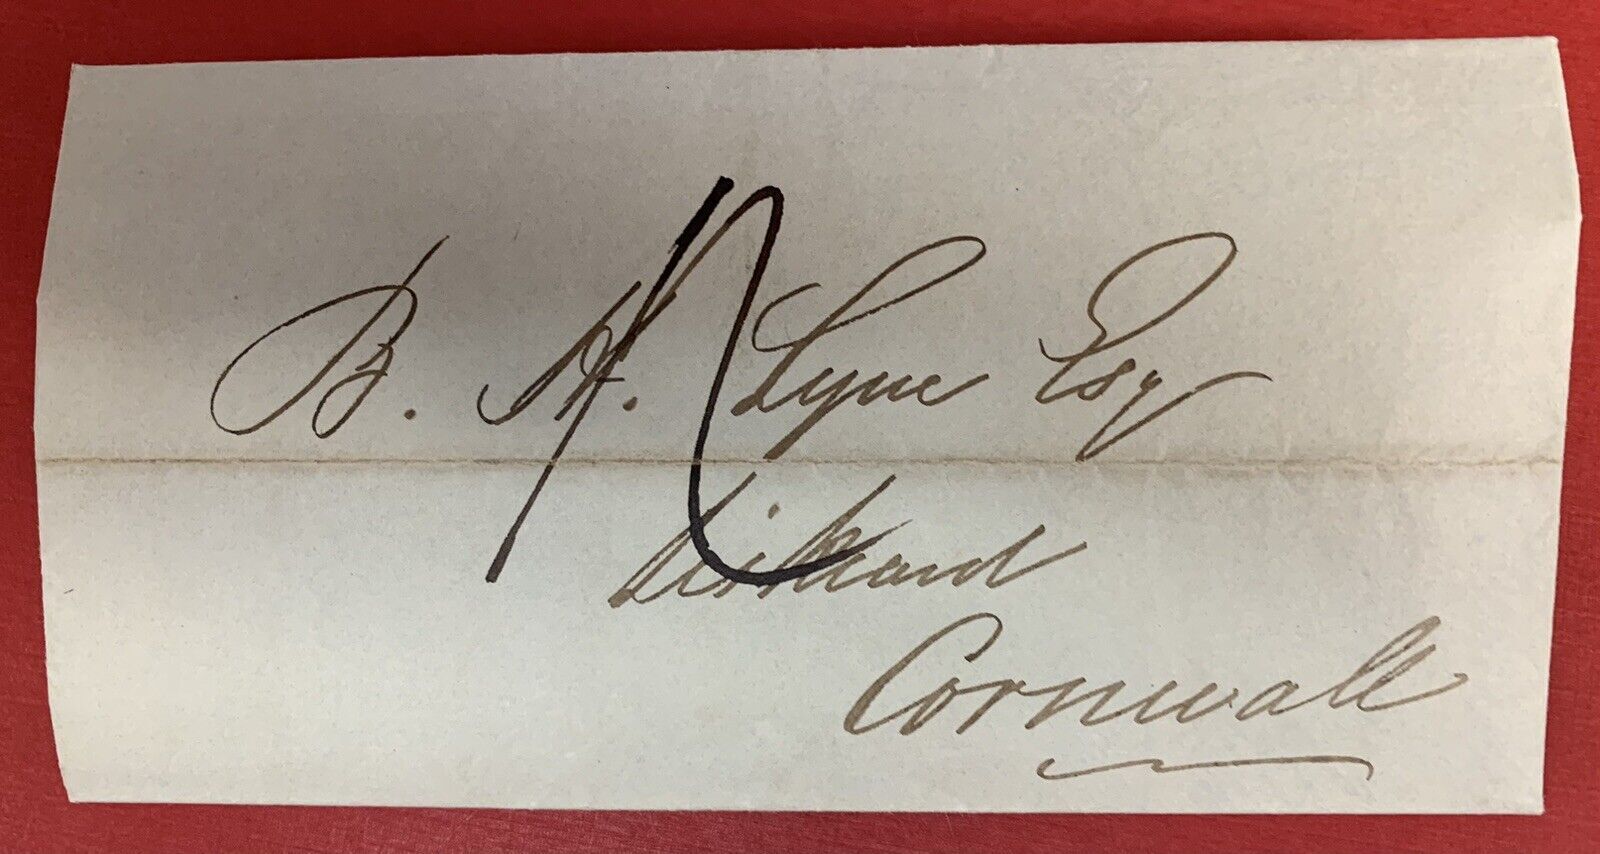 B. H. Lyne Esq
Liskeard
Cornwall